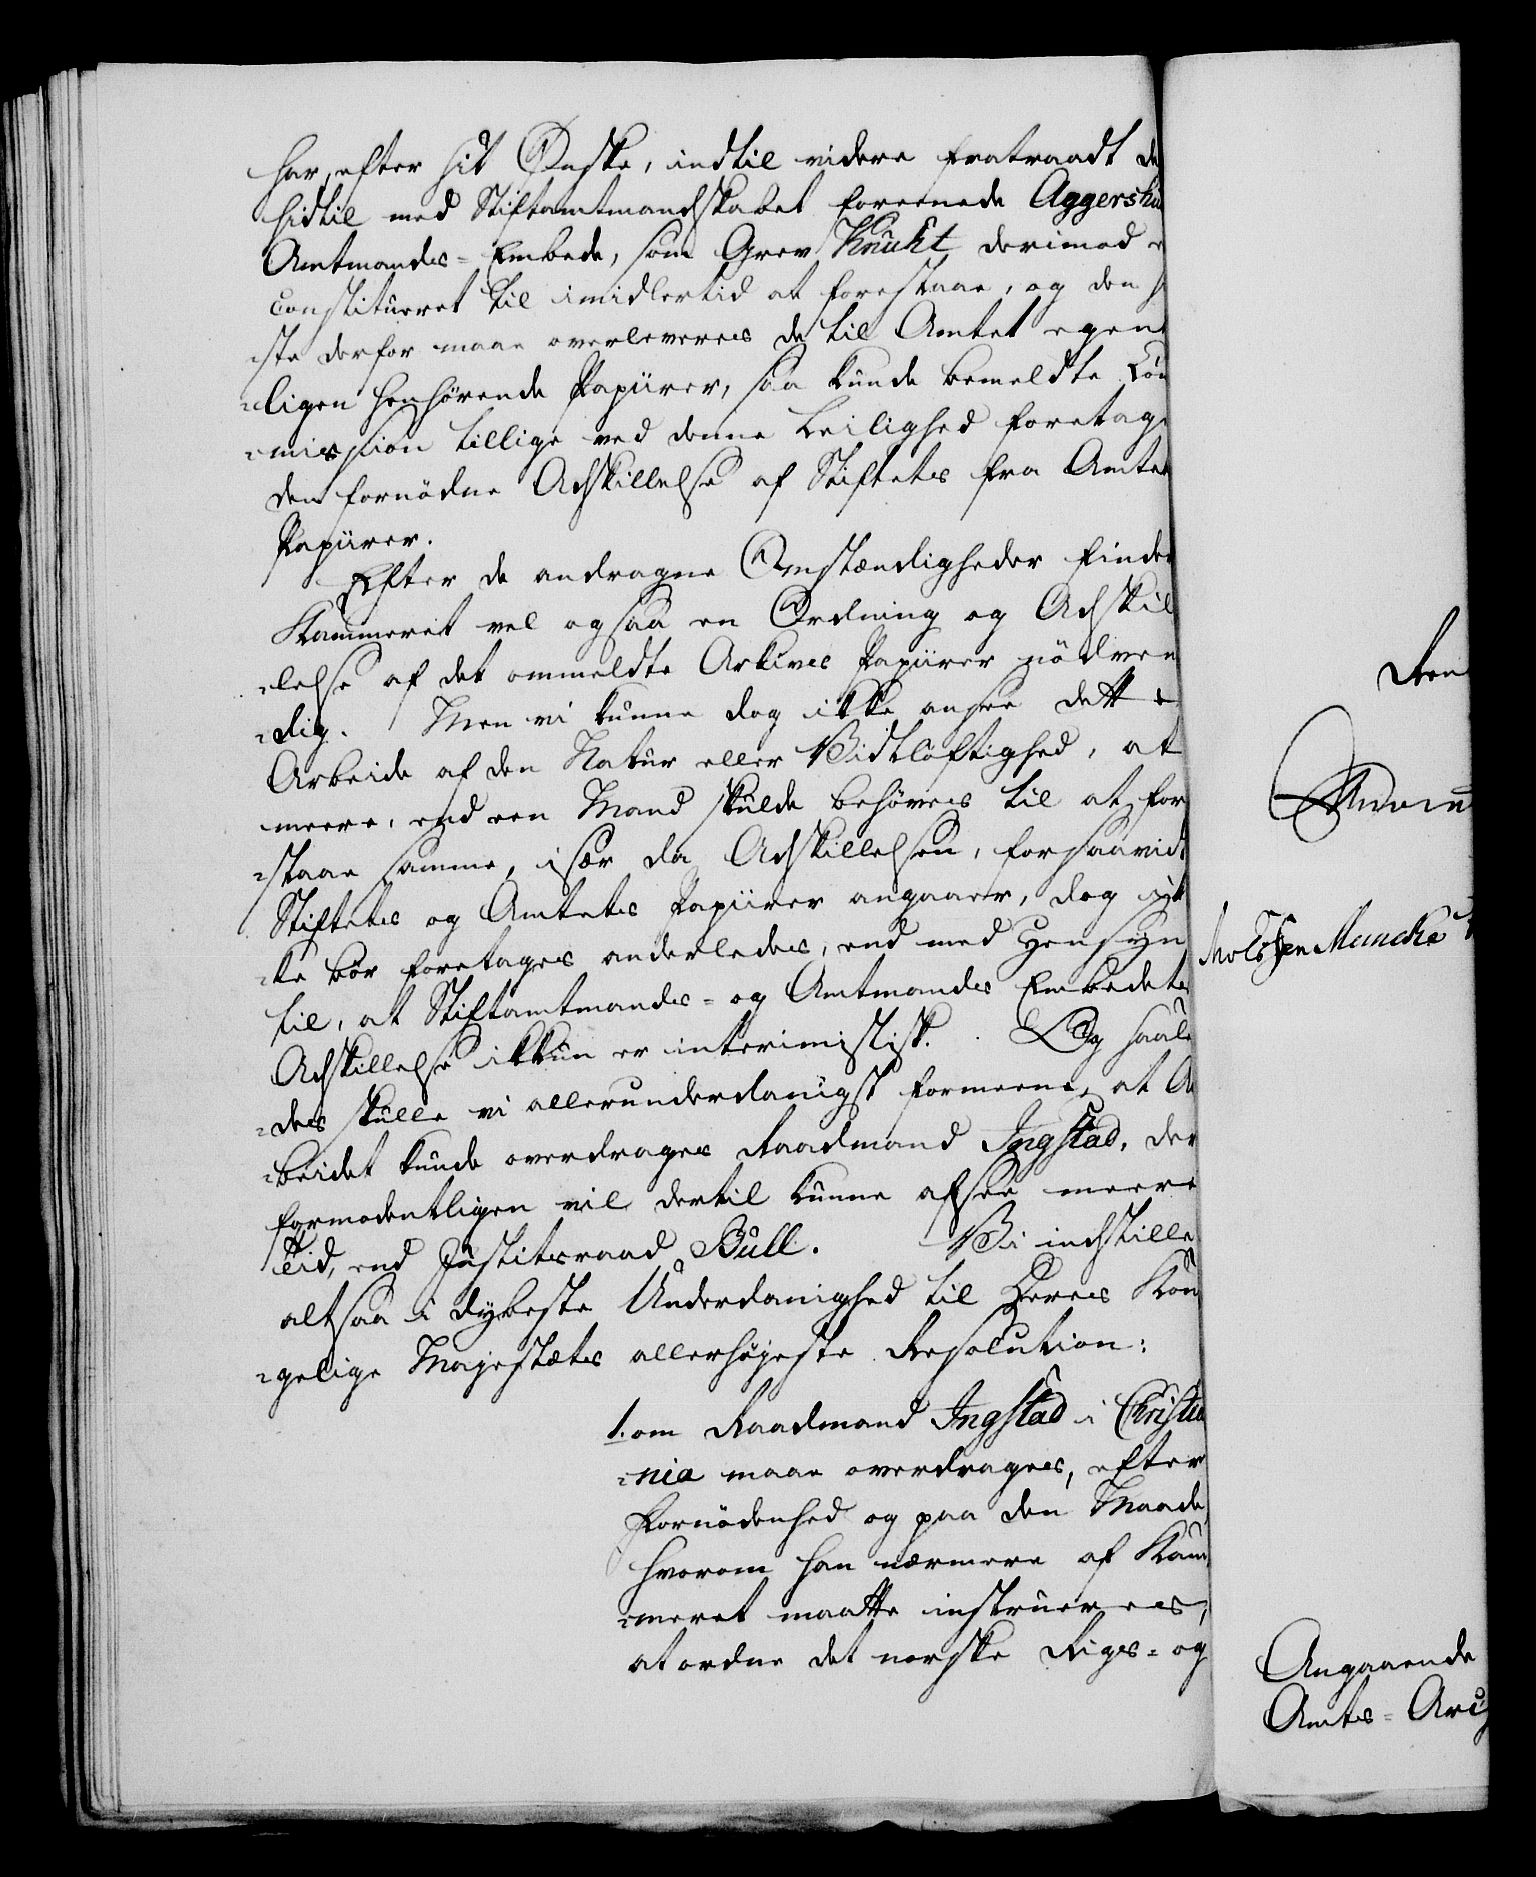 har, efter sit Ønske, indtil videre fratraadt de
hidtil med Stiftamtmandskabet foreenede Aggershu
Amtmands-Embede, som Grev Knuht derimod e
constitueret til imidlertid at forestaae, og den
-ste derfor maae overleveres de til Amtet egent
-ligen henhørende Papiirer, saa kunde bemeldte Com
-mission tillige ved denne Leilighed foretage
den fornødne Adskillelse af Stiftets fra Amtets
Papiirer.
Efter de andragne Omstændigheder finder
Kammeret vel ogsaa en Ordning og Adskil
-lelse af det ommeldte Arkivs Papiirer nødven
-dig. Men vi kunne dog ikke ansee dette
Arbeide af den Natur eller Vidtløftighed, at
meere, end een Mand skulde behøves til at for
-staae samme, især da Adskillelsen, forsaavidt
Stiftets og Amtets Papiirer angaaer, dog ik
-ke bør foretages anderledes, end med Hensyn
til, at Stiftamtmands- og Amtmands Embedets
Adskillelse ikkun er interimistisk. Og saale
-des skulle vi allerunderdanigst formeene, at Ar
-beidet kunde overdrages Raadmand Ingstad, der
formodentligen vil dertil kunne afsee meere
Tid, end Justitsraad Bull. Vi indstille
altsaa i dybeste Underdanighed til Deres Kon
-gelige Majestæts allerhøjeste Resolution:
1. om Raadmand Ingstad i Christia
-nia maae overdrages, efter
Fornødenhed og paa den Maade,
hvorom han nærmere af Kam
-meret maatte instrueres,
at ordne det norske Rigs- og
Ren
Muncke
Angaaende
Amts-Arch